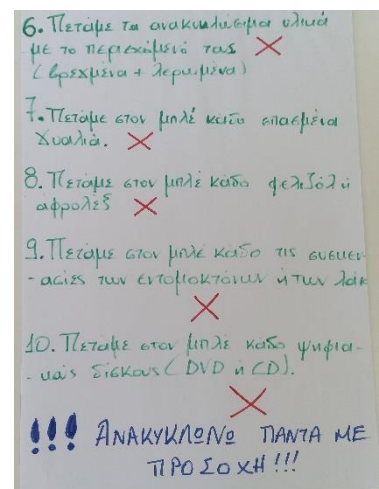 6. Πετάμε τα ανακυκλώσιμα υλικά
με το περιεχόμενό τους
(βρεχμένα + λερωμένα)
7. Πετάμε στον μπλέ κάδο σπασμένα
γυαλιά.
8. Πετάμε στον μπλέ κάδο φελιζόλ ή
αφρολέξ
9. Πετάμε στον μπλέ κάδο τις συσκευ-
-ασίες των εντομοκτόνων ή των λακ
10. Πετάμε στον μπλέ κάδο ψηφια-
-κούς δίσκους (DVD ή CD).
!!! ΑΝΑΚΥΚΛΩΝΩ ΠΑΝΤΑ ΜΕ
ΠΡΟΣΟΧΗ!!!